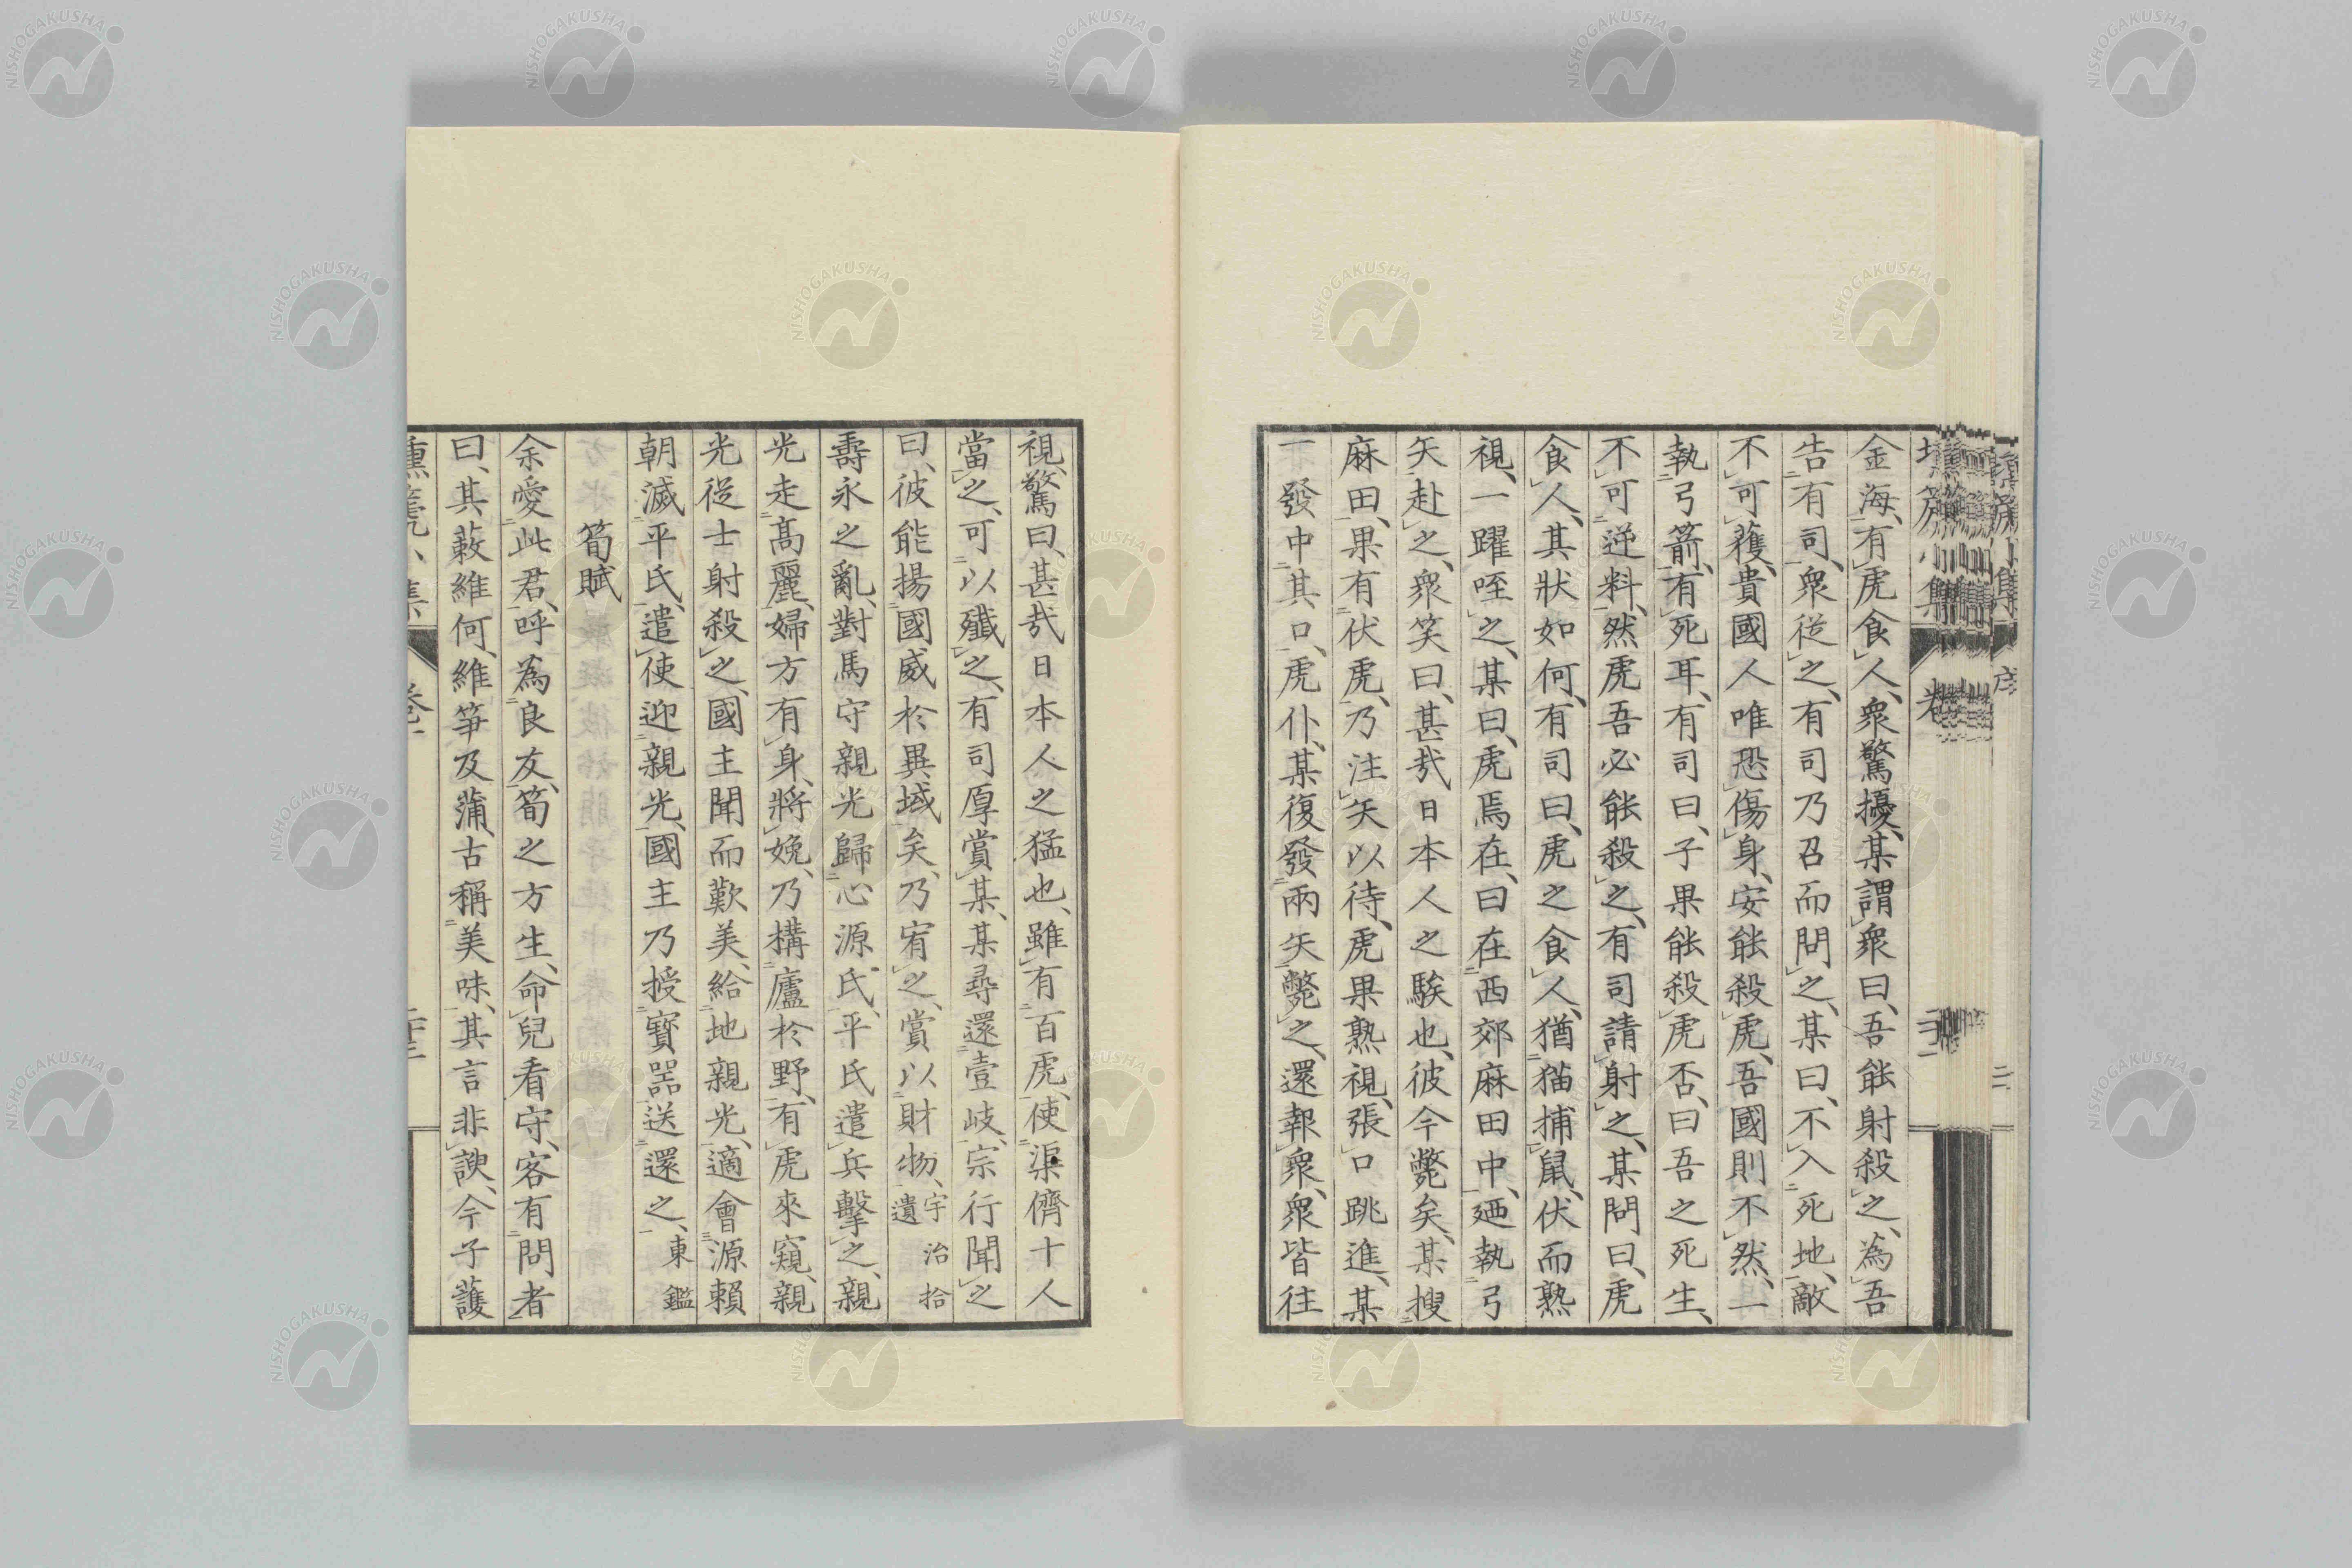 金海、有虎食人、衆驚擾、某謂衆曰、吾能射殺之、為吾
告有司、衆從之、有司乃召而問之、某曰、不入死地、敵
不可獲、貴國人唯恐傷身、安能殺虎、吾國則不然、一
執弓箭、有死耳、有司曰、子果能殺虎否、曰吾之死生、
不可逆料、然虎吾必能殺之、有司請射之、某問曰、虎
食人、其狀如何、有司曰、虎之食人、猶猫捕鼠、伏而熟
視、一躍咥之、某曰、虎焉在、曰在西郊麻田中、廼執弓
矢赴之、衆笑曰、甚哉日本人之騃也、彼今斃矣、某搜
麻田、果有伏虎、乃注矢以待、虎果熟視、張口跳進、某
一發中其口、虎仆、某復發兩矢斃之、還報衆、衆皆往
視、驚曰、甚哉日本人之猛也、雖有百虎、使渠儕十人
當之、可以殲之、有司厚賞某、某尋還壹岐、宗行聞之
曰、彼能揚國威於異域矣、乃宥之、賞以財物、宇治拾遺
壽永之亂、對馬守親光歸心源氏、平氏遣兵擊之、親
光走高麗、婦方有身、將娩、乃構廬於野、有虎來窺、親
光從士射殺之、國主聞而歎美、給地親光、適會源賴
朝滅平氏、遣使迎親光、國主乃授寶器送還之、東鑑
筍賦
余愛此君、呼為良友、筍之方生、命兒看守、客有問者
曰、其蔌維何、維筍及蒲、古稱美味、其言非諛、今子護